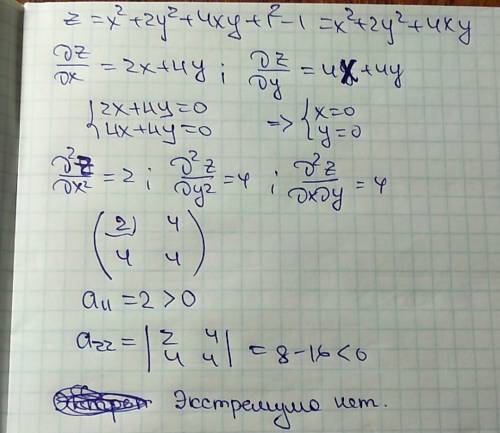 z = x² + 2y² + 4xy + 1² - 1 = x² + 2y² + 4xy
∂z/∂x = 2x + 4y ; ∂z/∂y = 4x + 4y
{ 2x + 4y = 0
4x + 4y = 0 => { x = 0
y = 0
∂²z/∂x² = 2 ; ∂²z/∂y² = 4 ; ∂²z/∂x∂y = 4
( 2 4
4 4 )
a₁₁ = 2 > 0
a₂₂ = | 2 4
4 4 | = 8 - 16 < 0
Экстремума нет.